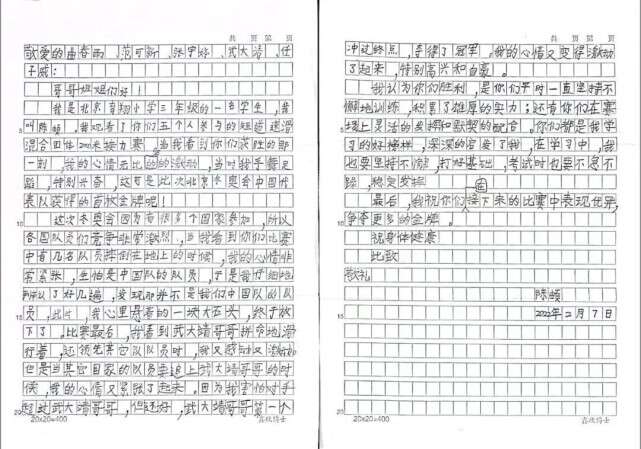 共 页 第 页
敬爱的曲春雨、范可新、张宇婷、武大靖、任
子威:
哥哥姐姐们好!
我是北京育翔小学三年级的一名学生,我
叫陈颉,我观看了你们五个人参与的短道速滑
混合团体2000米接力赛,当我看到你们获胜的那
一刻,我的心情无比的激动,当时我手舞足
蹈,特别兴奋,这可是此次北京冬奥会中国代
表队获得的首枚金牌呢!
这次冬奥会因为有很多个国家参加,所以
各国队员们竞争非常激烈,当我看到你们比赛
中有几名队员摔倒在地上的时候,我的心情非
常紧张,生怕是中国队的队员,于是我仔细地
了好几遍,发现那并不是我们中国队的队
员,此时,我心里悬着的一块大石头,终于放
下了。比赛最后,我看到武大靖哥哥拼命地滑
行着,还领先其它队队员时,我又感动又激动
但是当其它国家的队员要追上武大靖哥哥的时
候,我的心情又紧张了起来。因为我害怕对手
超过武大靖哥哥,但还好,武大靖哥哥第一个
20×20=400
共 页 第 页
冲过终点,夺得了冠军。我的心情又变得激动
了起来,特别高兴和自豪。
我认为你们胜利,是你们平时一直坚持不
懈地训练,积累了雄厚的实力;还有你们在赛
场上灵活的发挥和默契的配合。你们都是我学
习的好榜样,深深的启发了我,在学习中,我
也要坚持不懈,打好基础,考试时也要不急不
躁,稳定发挥
最后,我祝你们在接下来的比赛中表现优异,
争夺更多的金牌。
祝身体健康
此致
敬礼
陈颉
2022年2月7日
20×20=400